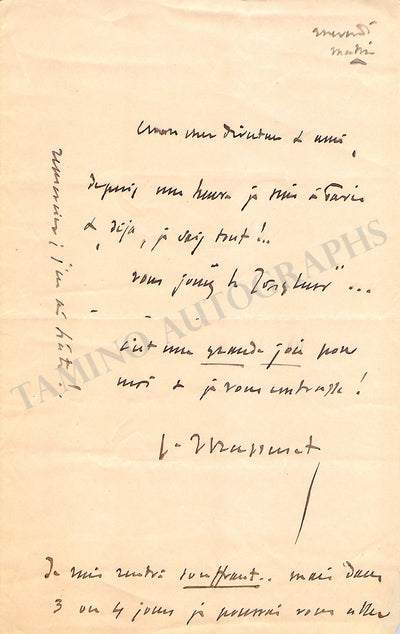 mercredi
matin
Mon cher directeur & ami,
depuis une heure je suis à Paris
& déjà, je sais tout!..
vous jouez le "Jongleur"...
C'est une grande joie pour
moi & je vous embrasse!
Massenet
Je suis rentré souffrant.. mais dans
3 ou 4 jours je pourrai vous aller
remercier; j'en ai hâte!
TAMINO AUTOGRAPHS